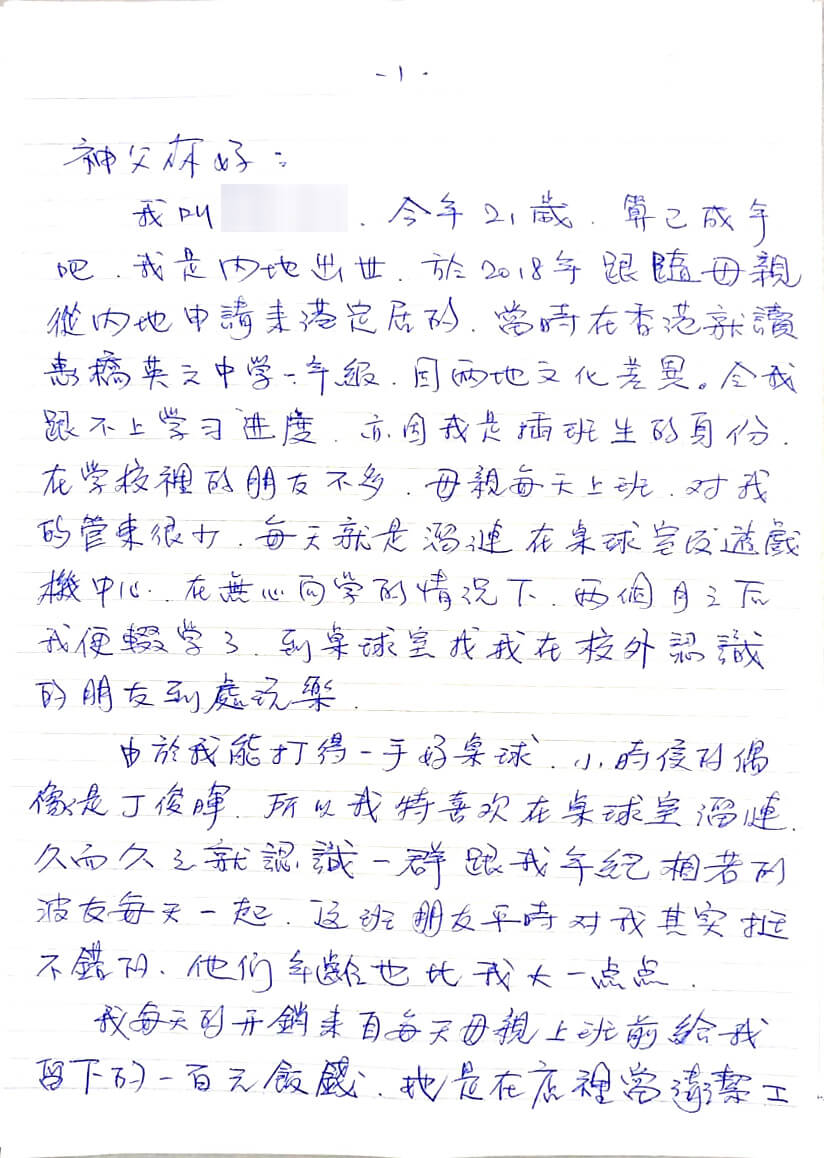 -1-
神父你好：
我叫 . 今年21歲. 算已成年
吧. 我是内地出世. 於2018年跟隨母親
從内地申請来港定居的. 當時在香港就讀
惠橋英文中学一年級. 因兩地文化差異。令我
跟不上学习进度. 亦因我是插班生的身份.
在学校裡的朋友不多. 母親每天上班. 对我
的管束很少. 每天就是溜漣在桌球室及遊戲
機中心. 在無心向学的情况下. 兩個月之后
我便輟学了. 到桌球室找我在校外認識
的朋友到處玩樂.
由於我能打得一手好桌球. 小時侯的偶
像是丁俊暉. 所以我特喜欢在桌球室溜漣.
久而久之就認識一群跟我年紀相若的
波友每天一起. 这班朋友平時对我其实挺
不錯的. 他们年齡也比我大一点点.
我每天的开銷来自每天母親上班前給我
留下的一百元飯錢. 她是在店裡當清潔工